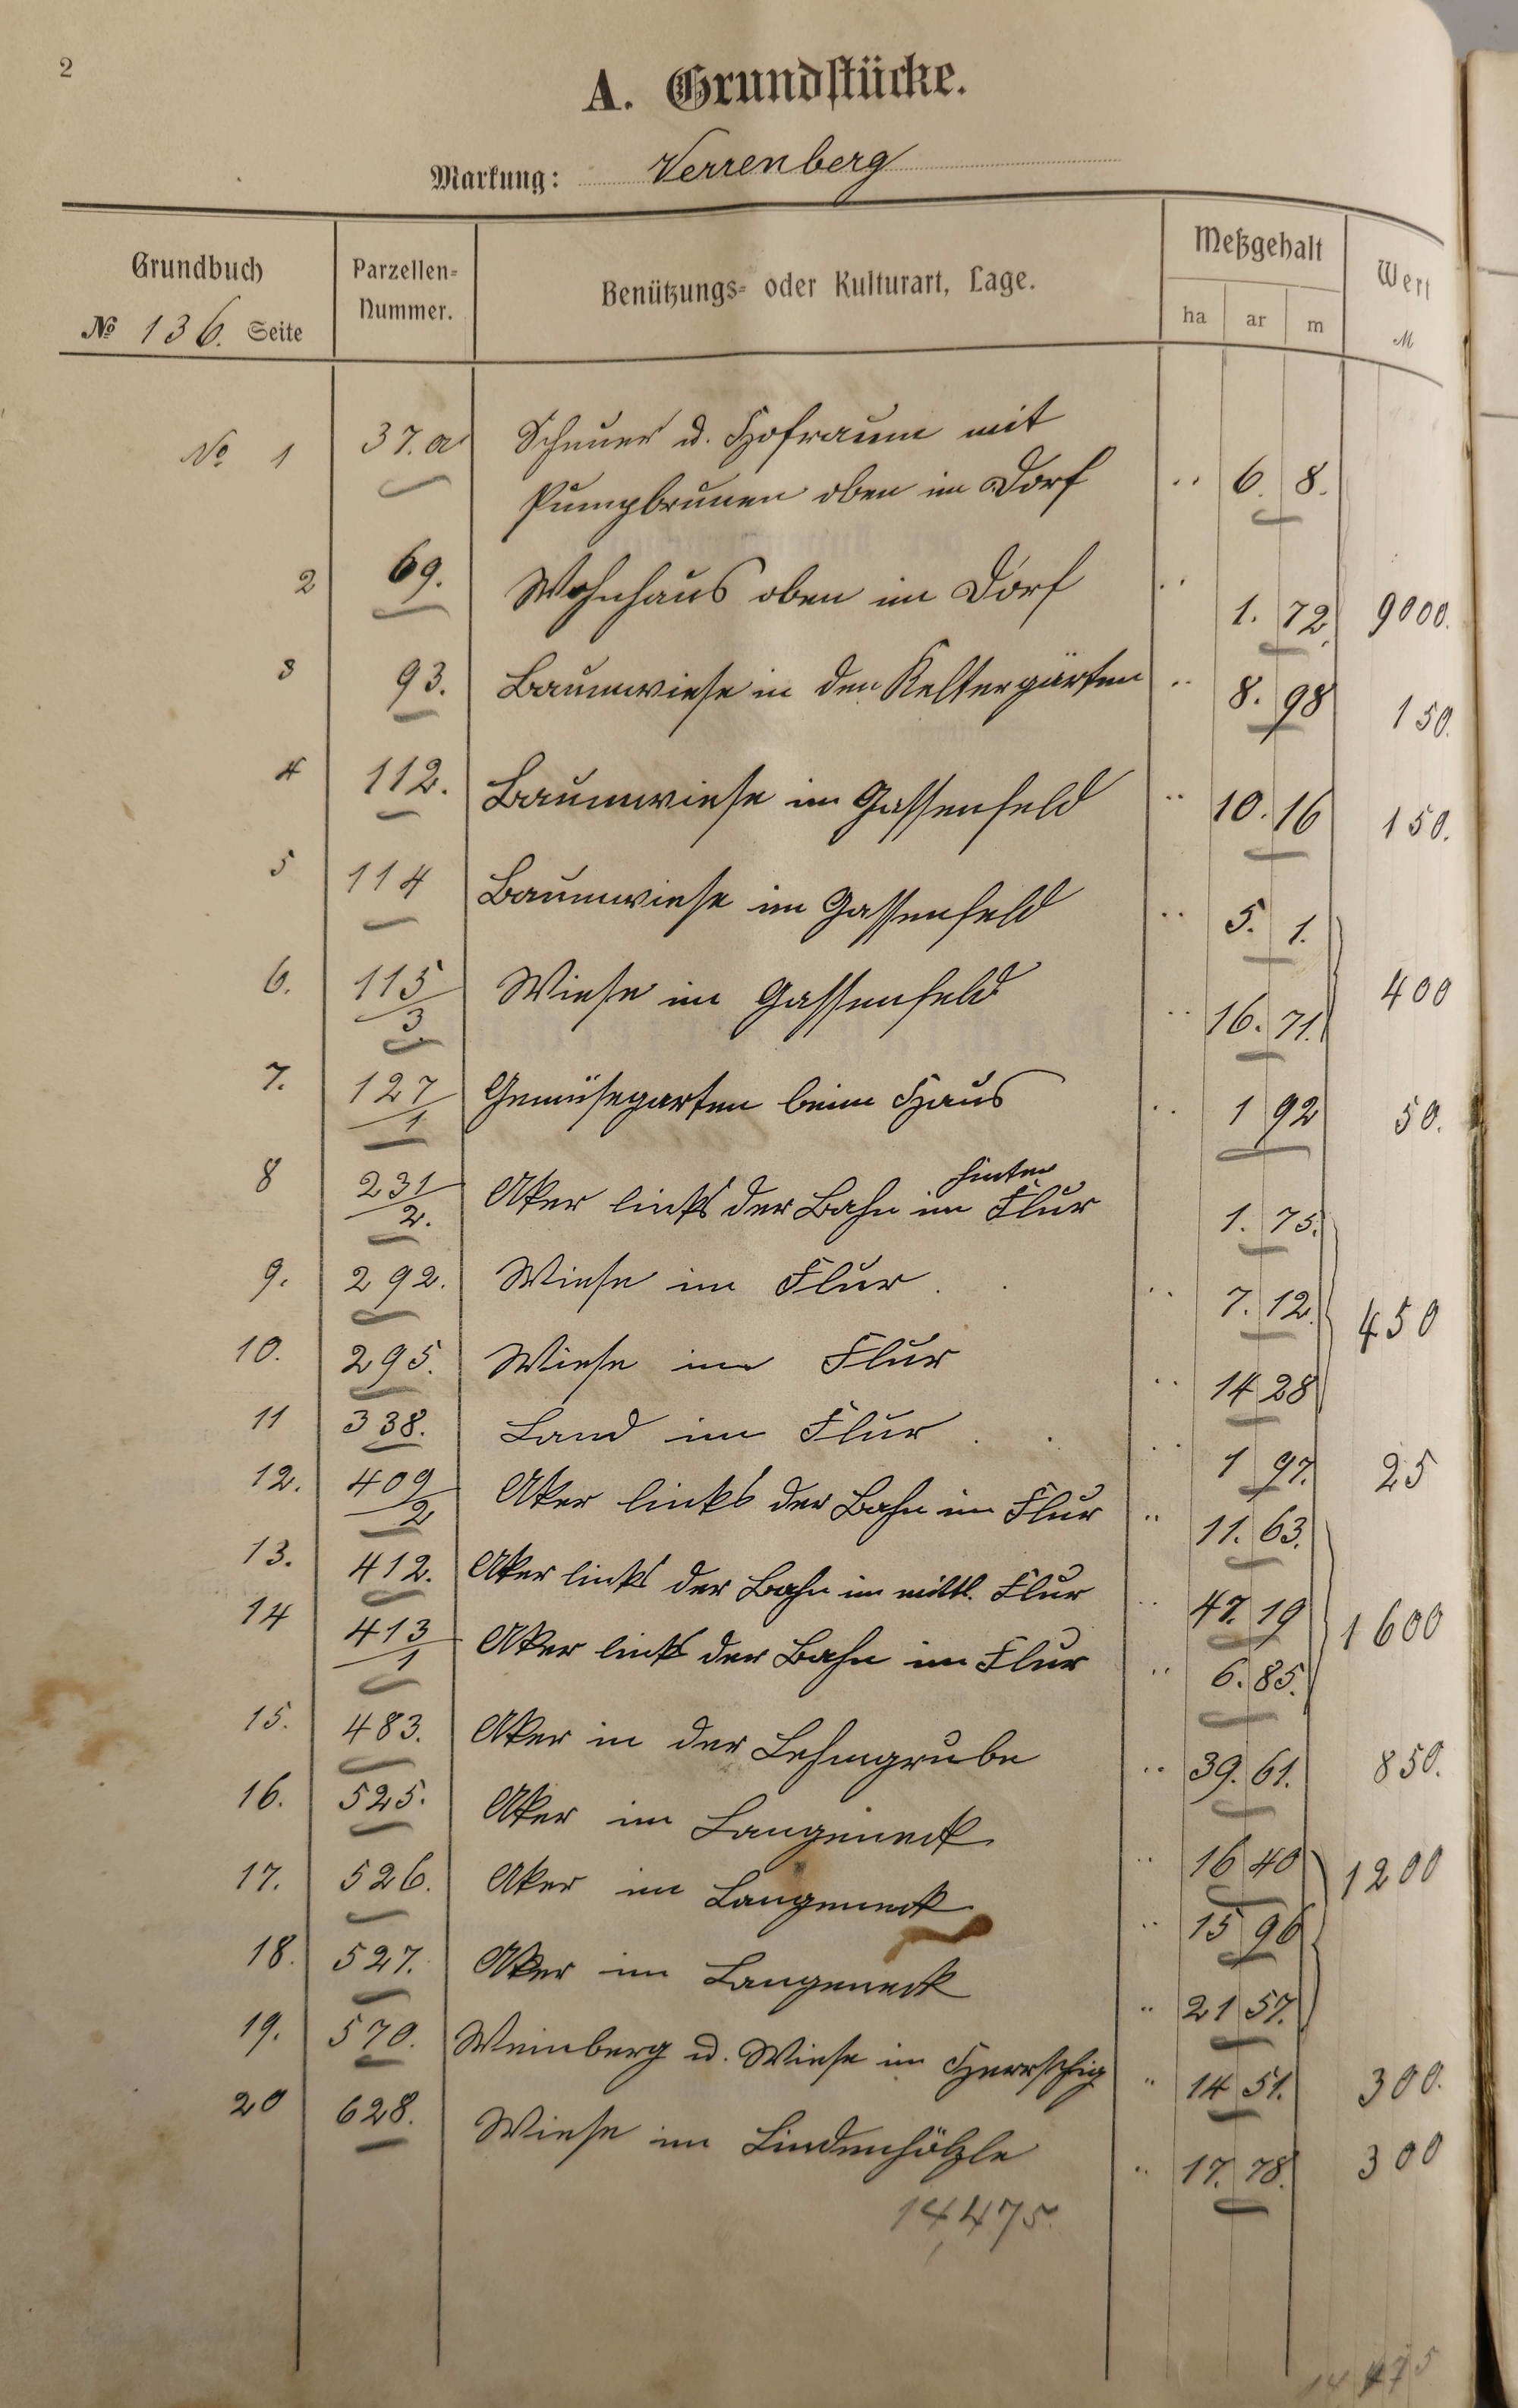 2
A. Grundstücke.
Markung: Verrenberg
Grundbuch
№ 136. Seite
Parzellen-
Nummer.
Benützungs- oder Kulturart, Lage.
Meßgehalt
ha ar m
Wert
M
No 1 37.a Scheuer u. Hofraum mit
Pumpbrunen oben im Dorf .. 6. 8.
2 69. Wohnhaus oben im Dorf .. 1. 72. 9000.
3 93. Baumwiese in den Keltergärten .. 8. 98 150.
4 112. Baumwiese im Gassenfeld .. 10. 16 150.
5 114 Baumwiese im Gassenfeld .. 5. 1.
6. 115/3. Wiese im Gassenfeld .. 16. 71. 400
7. 127/1 Gemüsegarten beim Haus .. 1 92 50.
8 231/2. Aker links der Bahn im hintern Flur 1. 75.
9. 292. Wiese im Flur . . .. 7. 12. 450
10. 295. Wiese im Flur .. 14 28
11 338. Land im Flur . . .. 1 97. 25
12. 409/2 Aker links der Bahn im Flur .. 11. 63.
13. 412. Aker links der Bahn im mittl. Flur .. 47. 19 1600
14 413/1 Aker links der Bahn im Flur .. 6. 85.
15. 483. Aker in der Lehmgrube .. 39. 61. 850.
16. 525. Aker im Langeneck .. 16 40 1200
17. 526. Aker im Langeneck .. 15 96
18. 527. Aker im Langeneck .. 21 57.
19. 570. Weinberg u. Wiese im .. 14 51. 300.
20 628. Wiese im Lindenhölzle .. 17. 78. 300
14,475.
14 475